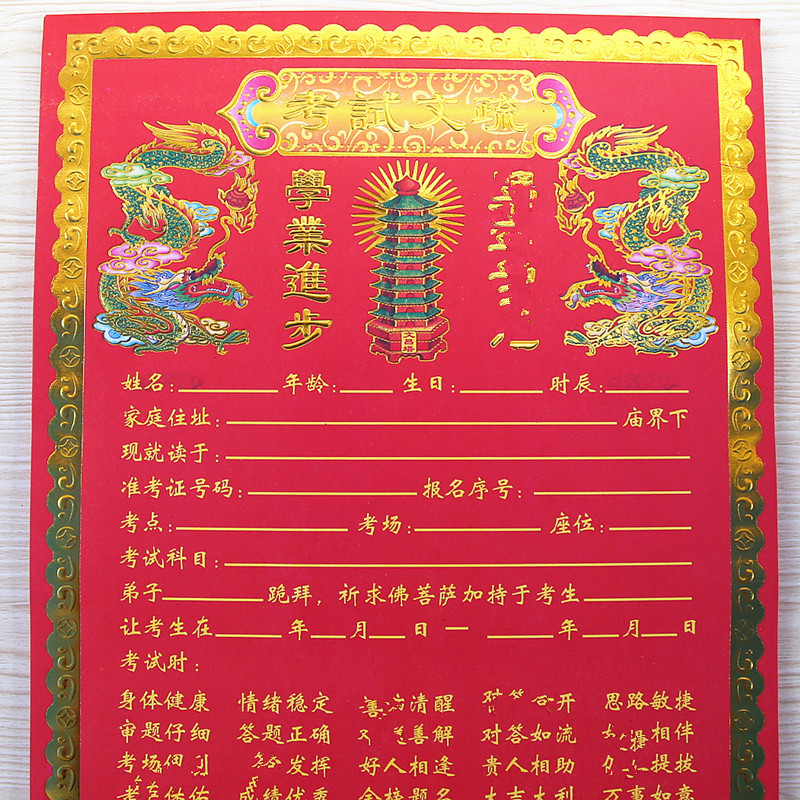 考試文疏
學業進步
姓名： 年龄： 生日： 时辰：
家庭住址： 庙界下
现就读于：
准考证号码： 报名序号：
考点： 考场： 座位：
考试科目：
弟子 跪拜，祈求佛菩萨加持于考生
让考生在 年 月 日 一 年 月 日
考试时：
身体健康 情绪稳定 清醒 开 思路敏捷
审题仔细 答题正确 善解 对答如流 相伴
考场 发挥 好人相逢 贵人相助 提拔
成绩优秀 金榜题名 大吉大利 万事如意